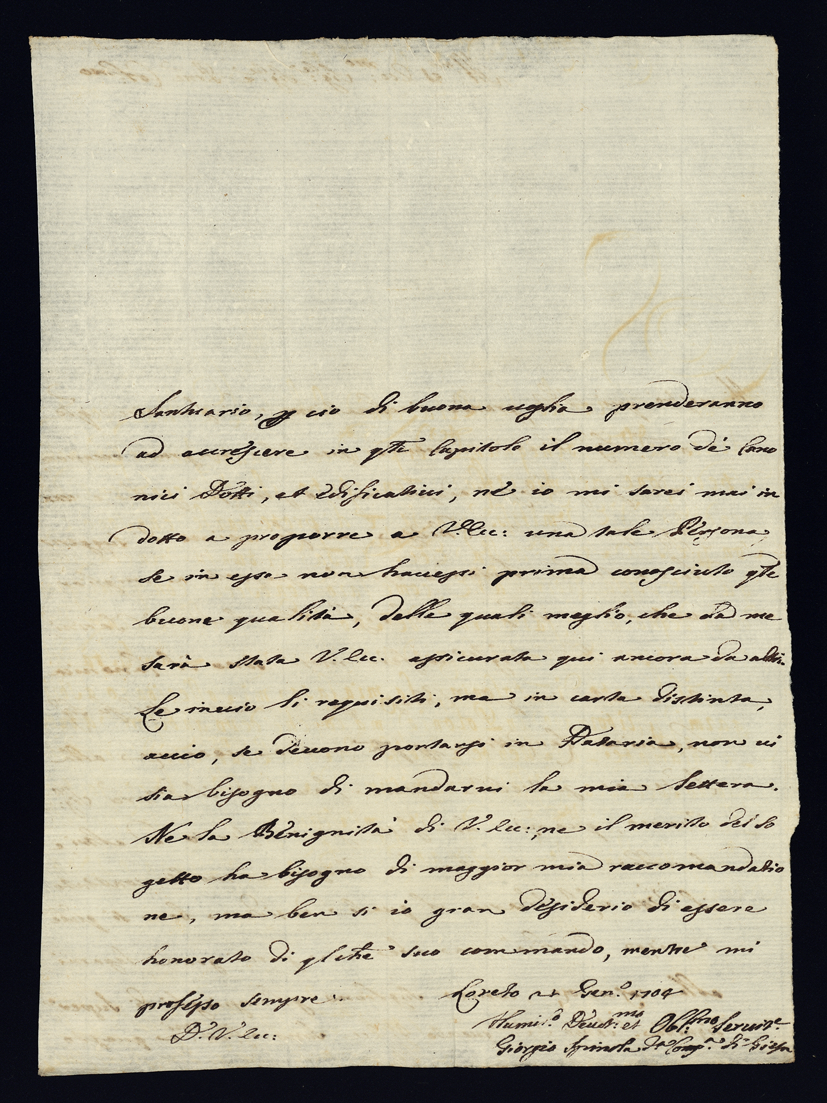 Santuario, p cio di buona voglia prenderanno
ad accrescere in qto Capitolo il numero de' Cano
nici Dotti, et edificativi, nè io mi sarei mai in
dotto a proporre a V. Ecc: una tale Persona
se in essa non havessi prima conosciuto qte
buone qualità, delle quali meglio, che da me
sarà stata V. Ecc. assicurata qui ancora da altri.
Le invio li requisiti, ma in carta distinta,
acciò, se devono portarsi in Dataria, non vi
sia bisogno di mandarvi la mia lettera.
Ne la Benignità di V. Ecc:, ne il merito del So
getto ha bisogno di maggior mia raccomandatio
ne, ma ben sì io gran desiderio di essere
honorato di qlche suo commando, mentre mi
professo sempre Loreto 21 Gen.o 1704
D. V. Ecc:
Humil.o Devot.mo et Obl.mo Servit.e
Giorgio Spinola Comp.a di Giesu